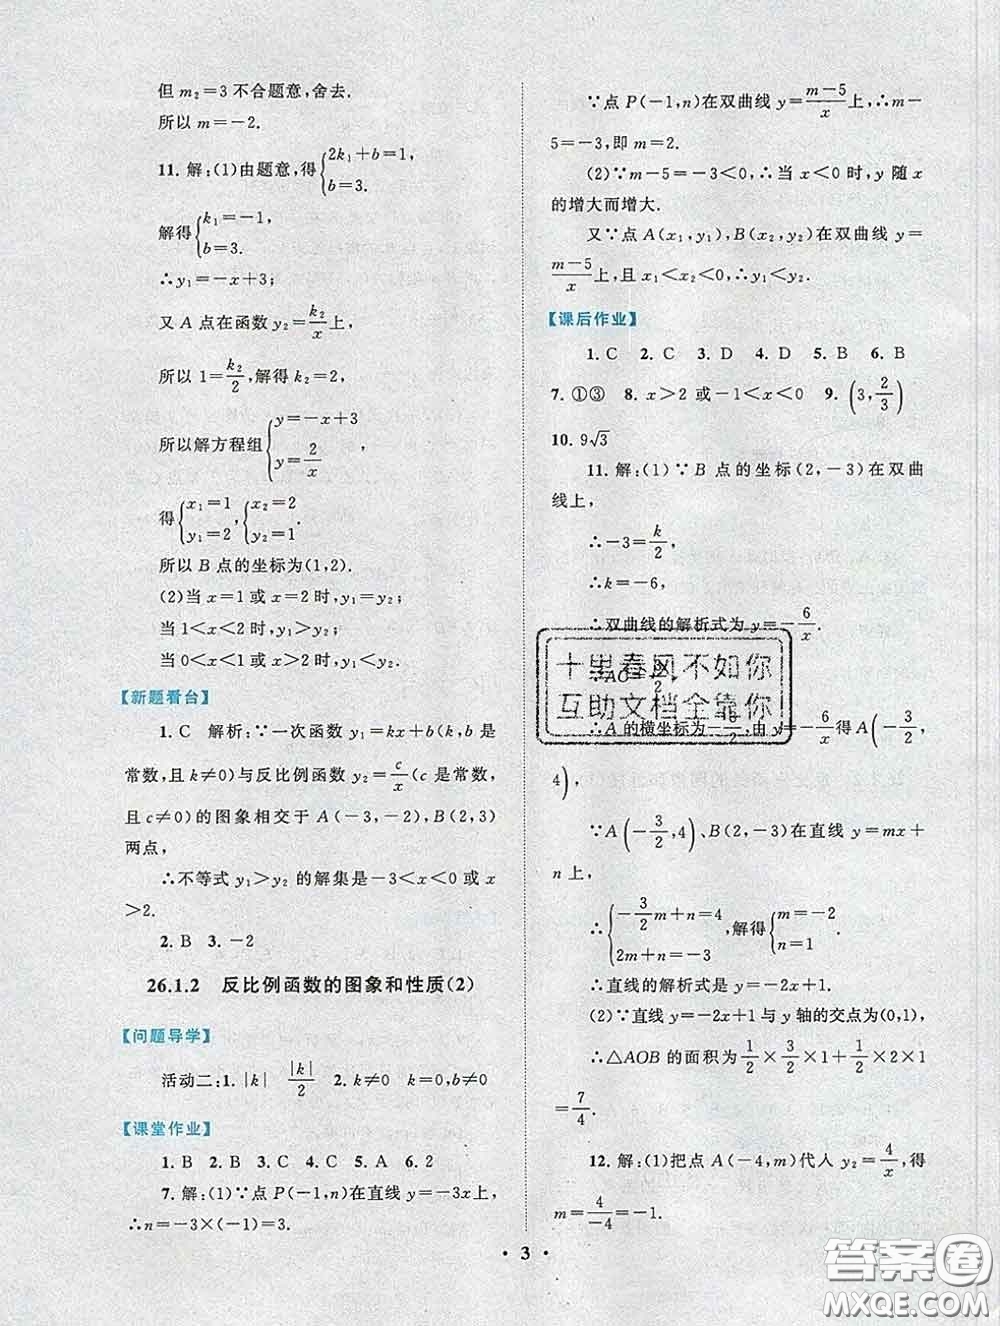 但 m₂=3 不合题意,舍去.
所以 m=-2.
11. 解:(1)由题意,得{2k₁+b=1,
b=3.
解得{k₁=-1,
b=3.
∴y₁=-x+3;
又 A 点在函数 y₂=k₂/x 上,
所以 1=k₂/2,解得 k₂=2,
所以解方程组{y=-x+3
y=2/x ,
得{x₁=1
y₁=2,{x₂=2
y₂=1.
所以 B 点的坐标为(1,2).
(2)当 x=1 或 x=2 时,y₁=y₂;
当 1<x<2 时,y₁>y₂;
当 0<x<1 或 x>2 时,y₁<y₂.
【新题看台】
1. C 解析:∵一次函数 y₁=kx+b(k,b 是
常数,且 k≠0)与反比例函数 y₂=c/x(c 是常数,
且 c≠0)的图象相交于 A(-3,-2),B(2,3)
两点,
∴不等式 y₁>y₂ 的解集是-3<x<0 或 x
>2.
2. B 3. -2
26.1.2 反比例函数的图象和性质(2)
【问题导学】
活动二:1. |k| |k|/2 2. k≠0 k<0,b≠0
【课堂作业】
1. B 2. B 3. C 4. C 5. A 6. 2
7. 解:(1)∵点 P(-1,n)在直线 y=-3x 上,
∴n=-3×(-1)=3.
∵点 P(-1,n)在双曲线 y=(m-5)/x 上,∴m-
5=-3,即 m=2.
(2)∵m-5=-3<0,∴当 x<0 时,y 随 x
的增大而增大.
又∵点 A(x₁,y₁),B(x₂,y₂)在双曲线 y=
(m-5)/x 上,且 x₁<x₂<0,∴y₁<y₂.
【课后作业】
1. C 2. C 3. D 4. D 5. B 6. B
7. ①③ 8. x>2 或-1<x<0 9. (3,2/3)
10. 9√3
11. 解:(1)∵B 点的坐标(2,-3)在双曲
线上,
∴-3=k/2,
∴k=-6,
∴双曲线的解析式为 y=-6/x.
十里春风不如你
互助文档全靠你
∴A 的横坐标为 ,由 y=-6/x 得 A(-3/2,
4),
∵A(-3/2,4)、B(2,-3)在直线 y=mx+
n 上,
∴{-3/2m+n=4
2m+n=-3 ,解得{m=-2
n=1 .
∴直线的解析式是 y=-2x+1.
(2)∵直线 y=-2x+1 与 y 轴的交点为(0,1),
∴△AOB 的面积为1/2×3/2×1+1/2×2×1
=7/4.
12. 解:(1)把点 A(-4,m)代人 y₂=4/x,得
m=4/-4=-1.
• 3 •
答案圈
MXQE.COM